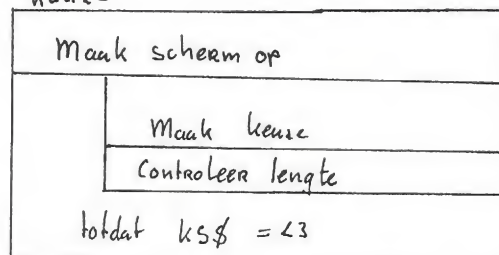 Maak scherm op
Maak keuze
Controleer lengte
totdat ks$ = <3